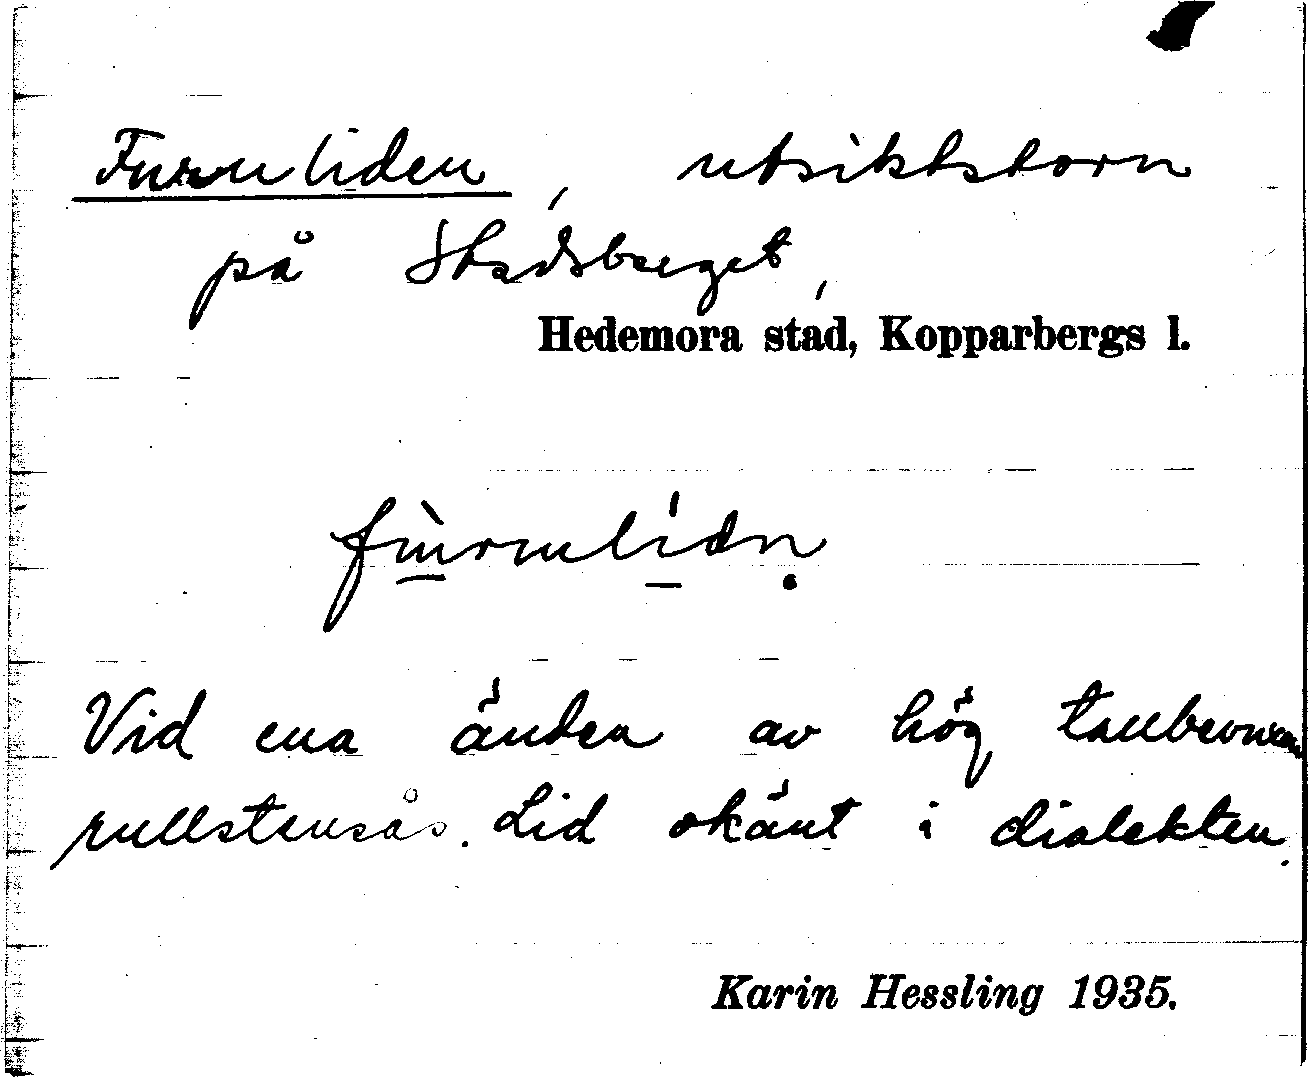 Furuliden, utsiktstorn
på Stadsberget,
Hedemora stad, Kopparbergs l.
Vid ena änden av hög tallbevuxen
rullstensås. Lid okänt i dialekten.
Karin Hessling 1935.